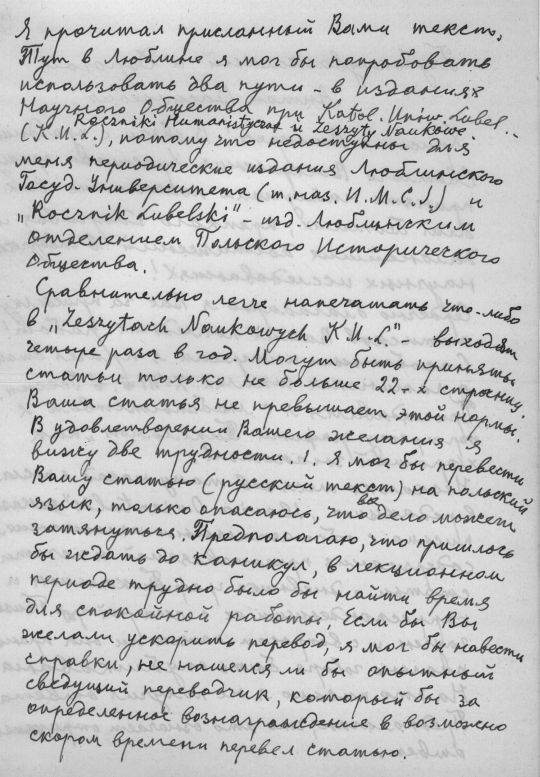 Я прочитал присланный Вами текст.
Тут в Люблине я мог бы попробовать
использовать два пути – в изданиях
Научного Общества при Katol. Uniw. Lubel..
Roczniki Humanistyczne и Zeszyty Naukowe.
(K.U.L.), потому что недоступны для
меня периодические издания Люблинского
Госуд. Университета (т. наз. U.M.C.S.) и
„Rocznik Lubelski" – изд. Люблинским
отделением Польского Исторического
Общества.
Сравнительно легче напечатать что-либо
в „Zeszytach Naukowych K.U.L." – выходят
четыре раза в год. Могут быть приняты
статьи только не больше 22-х страниц.
Ваша статья не превышает этой нормы.
В удовлетворении Вашего желания я
вижу две трудности. 1. Я мог бы перевести
Вашу статью (русский текст) на польский
язык, только опасаюсь, что все дело может
затянуться. Предполагаю, что пришлось
бы ждать до каникул, в лекционном
периоде трудно было бы найти время
для спокойной работы. Если бы Вы
желали ускорить перевод, я мог бы навести
справки, не нашелся ли бы опытный
сведущий переводчик, который бы за
определенное вознаграждение в возможно
скором времени перевел статью.